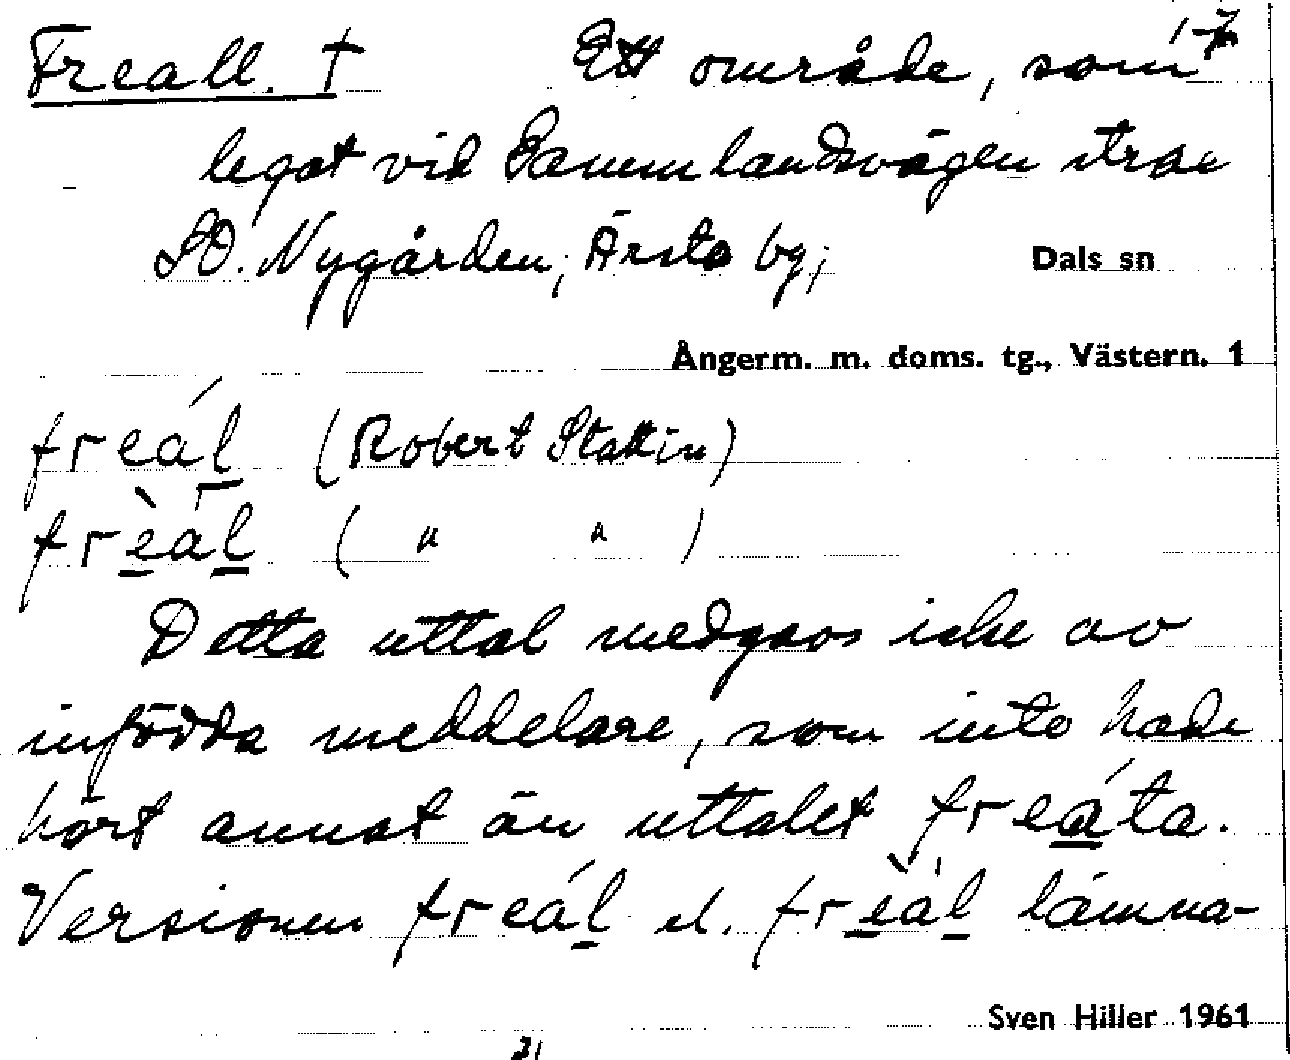 Freall. † Ett område, som
legat vid Gamm landsvägen strax
SO. Nygården, Ärsta bg;
Dals sn
Ångerm. m. doms. tg., Västern. 1
freál (Robert Stattin)
frèal ( " " )
Detta uttal medgavs icke av
infödda meddelare, som inte hade
hört annat än uttalet freáta.
Versionen freál el. frèal lämna-
Sven Hiller 1961